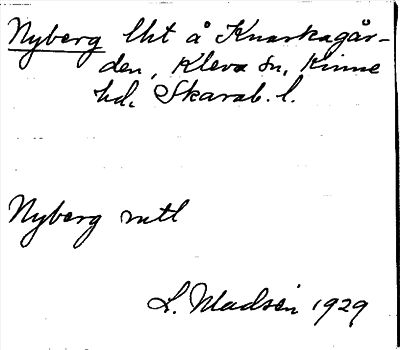 Nyberg lht å Knarkagår-
den, Kleva sn, Kinne
hd, Skarab. l.
Nyberg mtl
L. Madsén 1929